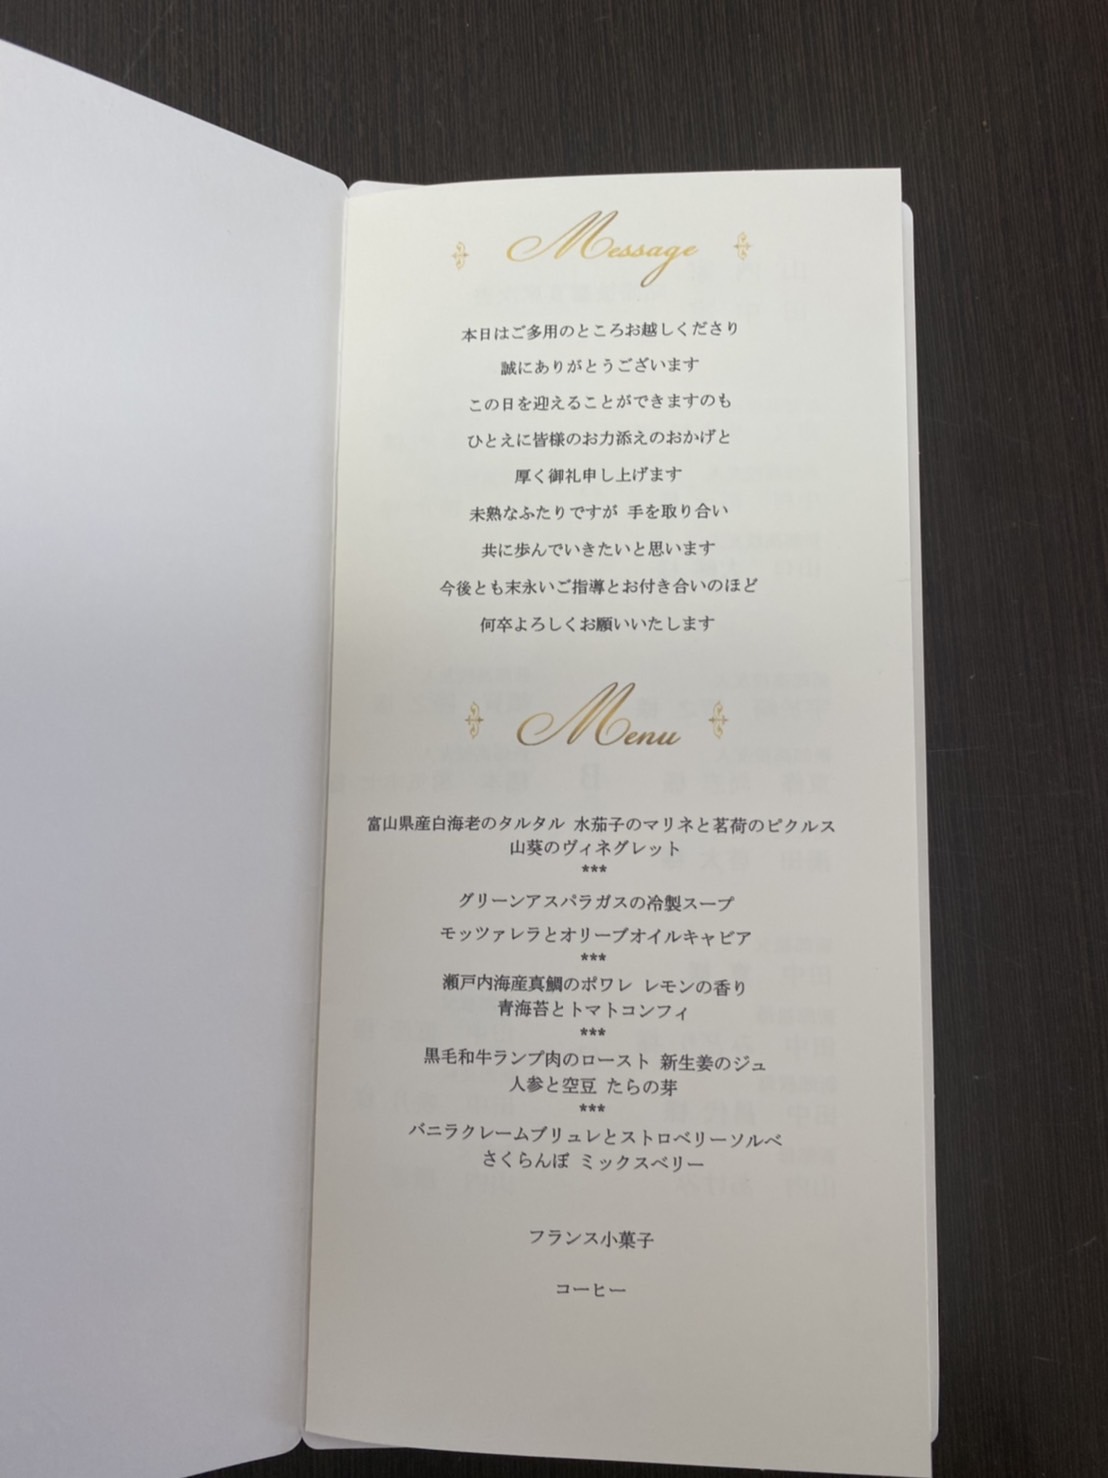 Message
本日はご多用のところお越しくださり
誠にありがとうございます
この日を迎えることができますのも
ひとえに皆様のお力添えのおかげと
厚く御礼申し上げます
未熟なふたりですが 手を取り合い
共に歩んでいきたいと思います
今後とも末永いご指導とお付き合いのほど
何卒よろしくお願いいたします
Menu
富山県産白海老のタルタル 水茄子のマリネと茗荷のピクルス
山葵のヴィネグレット
***
グリーンアスパラガスの冷製スープ
モッツァレラとオリーブオイルキャビア
***
瀬戸内海産真鯛のポワレ レモンの香り
青海苔とトマトコンフィ
***
黒毛和牛ランプ肉のロースト 新生姜のジュ
人参と空豆 たらの芽
***
バニラクレームブリュレとストロベリーソルベ
さくらんぼ ミックスベリー
フランス小菓子
コーヒー